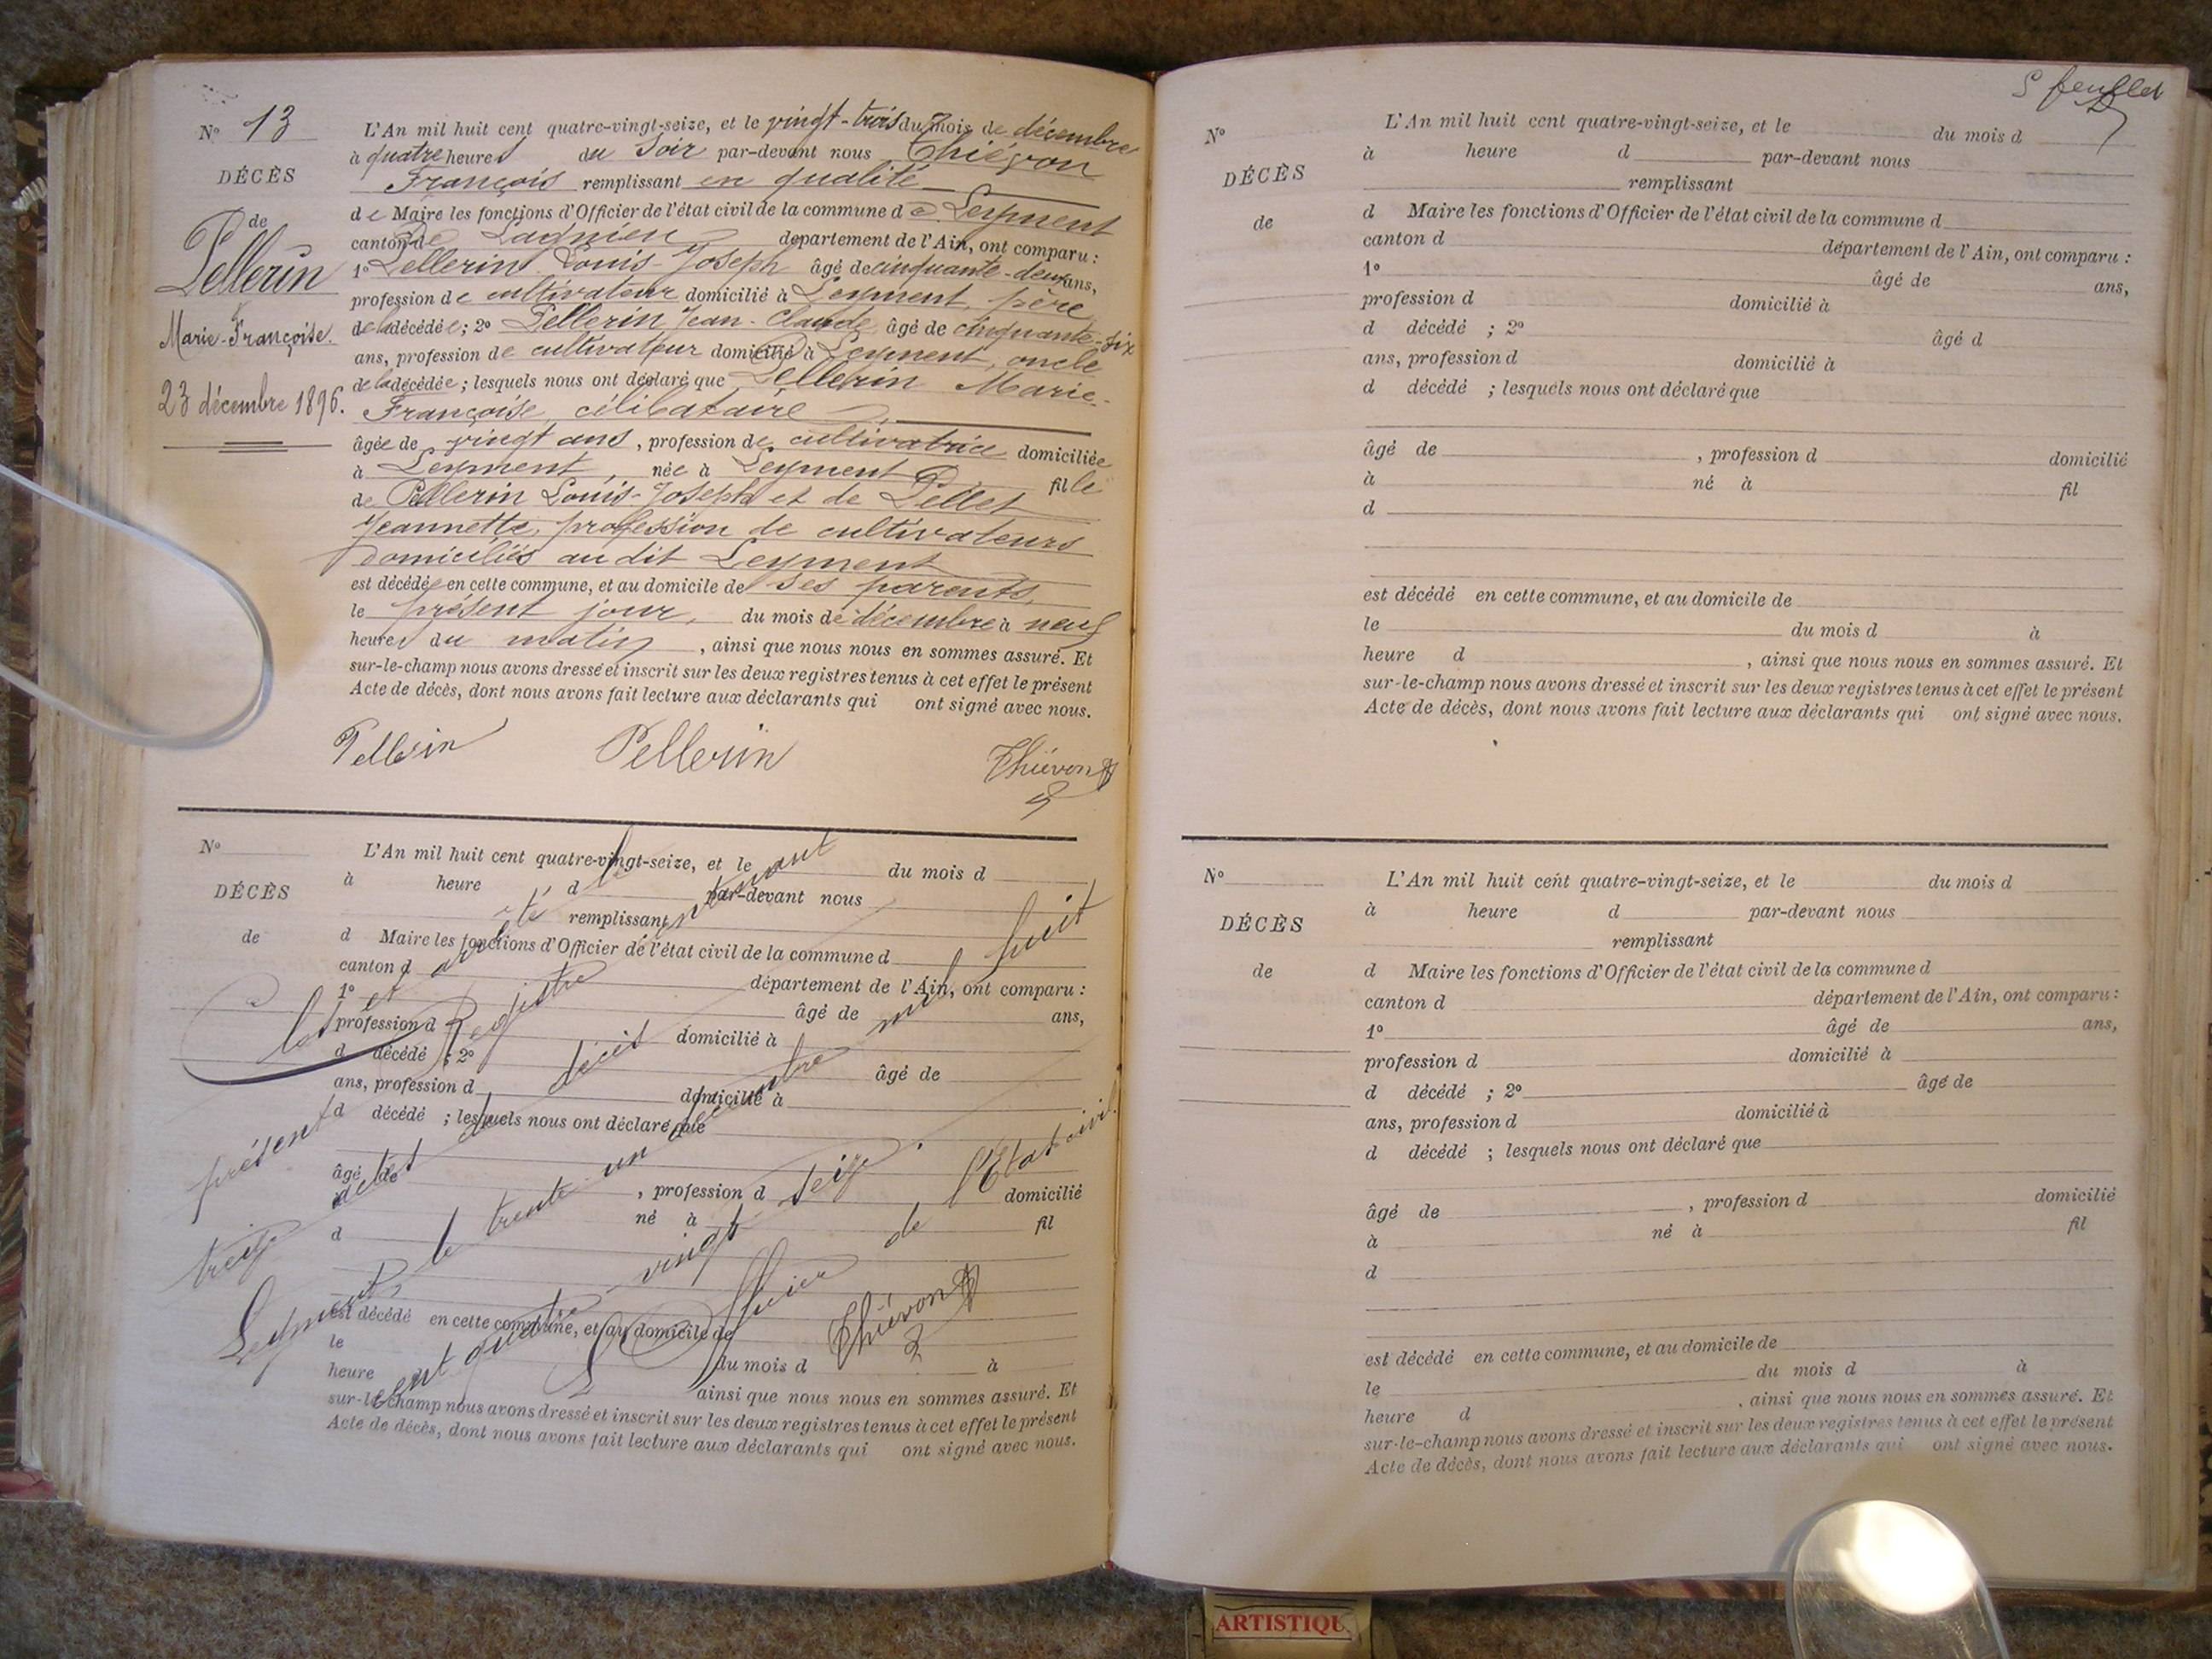 N° 13
DÉCÈS
de
Pellerin
Marie-Françoise.
23 décembre 1896.
L'An mil huit cent quatre-vingt-seize, et le vingt-trois du mois de décembre
à quatre heures du soir par-devant nous Thiévon
François remplissant en qualité
de Maire les fonctions d'Officier de l'état civil de la commune de Leyment
canton de Lagnieu département de l'Ain, ont comparu :
1° Pellerin Louis-Joseph âgé de cinquante-deux ans,
profession de cultivateur domicilié à Leyment, père
de la décédée ; 2° Pellerin Jean-Claude âgé de cinquante-six
ans, profession de cultivateur domicilié à Leyment, oncle
de la décédée ; lesquels nous ont déclaré que Pellerin Marie-
Françoise, célibataire
âgée de vingt ans, profession de cultivatrice domiciliée
à Leyment, née à Leyment fille
de Pellerin Louis-Joseph et de Pellet
Jeannette, profession de cultivateurs
domiciliés au dit Leyment
est décédée en cette commune, et au domicile de ses parents,
le présent jour, du mois de décembre à neuf
heures du matin, ainsi que nous nous en sommes assuré. Et
sur-le-champ nous avons dressé et inscrit sur les deux registres tenus à cet effet le présent
Acte de décès, dont nous avons fait lecture aux déclarants qui ont signé avec nous.
Pellerin Pellerin Thiévon
N°
DÉCÈS
de
L'An mil huit cent quatre-vingt-seize, et le du mois d
à heure d par-devant nous
remplissant
d Maire les fonctions d'Officier de l'état civil de la commune d
canton d département de l'Ain, ont comparu :
1° âgé de ans,
profession d domicilié à
d décédé ; 2° âgé de
ans, profession d domicilié à
d décédé ; lesquels nous ont déclaré que
âgé de , profession d domicilié
à né à fil
d
est décédé en cette commune, et au domicile de
le du mois d à
heure ainsi que nous nous en sommes assuré. Et
sur-le-champ nous avons dressé et inscrit sur les deux registres tenus à cet effet le présent
Acte de décès, dont nous avons fait lecture aux déclarants qui ont signé avec nous.
Clos et arrêté le
présent Registre contenant
treize actes de décès
Leyment le trente un décembre mil huit
cent quatre-vingt-seize.
L'Officier de l'Etat-civil
Thiévon
5 feuillet
N°
DÉCÈS
de
L'An mil huit cent quatre-vingt-seize, et le du mois d
à heure d par-devant nous
remplissant
d Maire les fonctions d'Officier de l'état civil de la commune d
canton d département de l'Ain, ont comparu :
1° âgé de ans,
profession d domicilié à
d décédé ; 2° âgé d
ans, profession d domicilié à
d décédé ; lesquels nous ont déclaré que
âgé de , profession d domicilié
à né à fil
d
est décédé en cette commune, et au domicile de
le du mois d à
heure d , ainsi que nous nous en sommes assuré. Et
sur-le-champ nous avons dressé et inscrit sur les deux registres tenus à cet effet le présent
Acte de décès, dont nous avons fait lecture aux déclarants qui ont signé avec nous.
N°
DÉCÈS
de
L'An mil huit cent quatre-vingt-seize, et le du mois d
à heure d par-devant nous
remplissant
d Maire les fonctions d'Officier de l'état civil de la commune d
canton d département de l'Ain, ont comparu :
1° âgé de ans,
profession d domicilié à
d décédé ; 2° âgé de
ans, profession d domicilié à
d décédé ; lesquels nous ont déclaré que
âgé de , profession d domicilié
à né à fil
d
est décédé en cette commune, et au domicile de
le du mois d à
heure d , ainsi que nous nous en sommes assuré. Et
sur-le-champ nous avons dressé et inscrit sur les deux registres tenus à cet effet le présent
Acte de décès, dont nous avons fait lecture aux déclarants qui ont signé avec nous.
ARTISTIQU